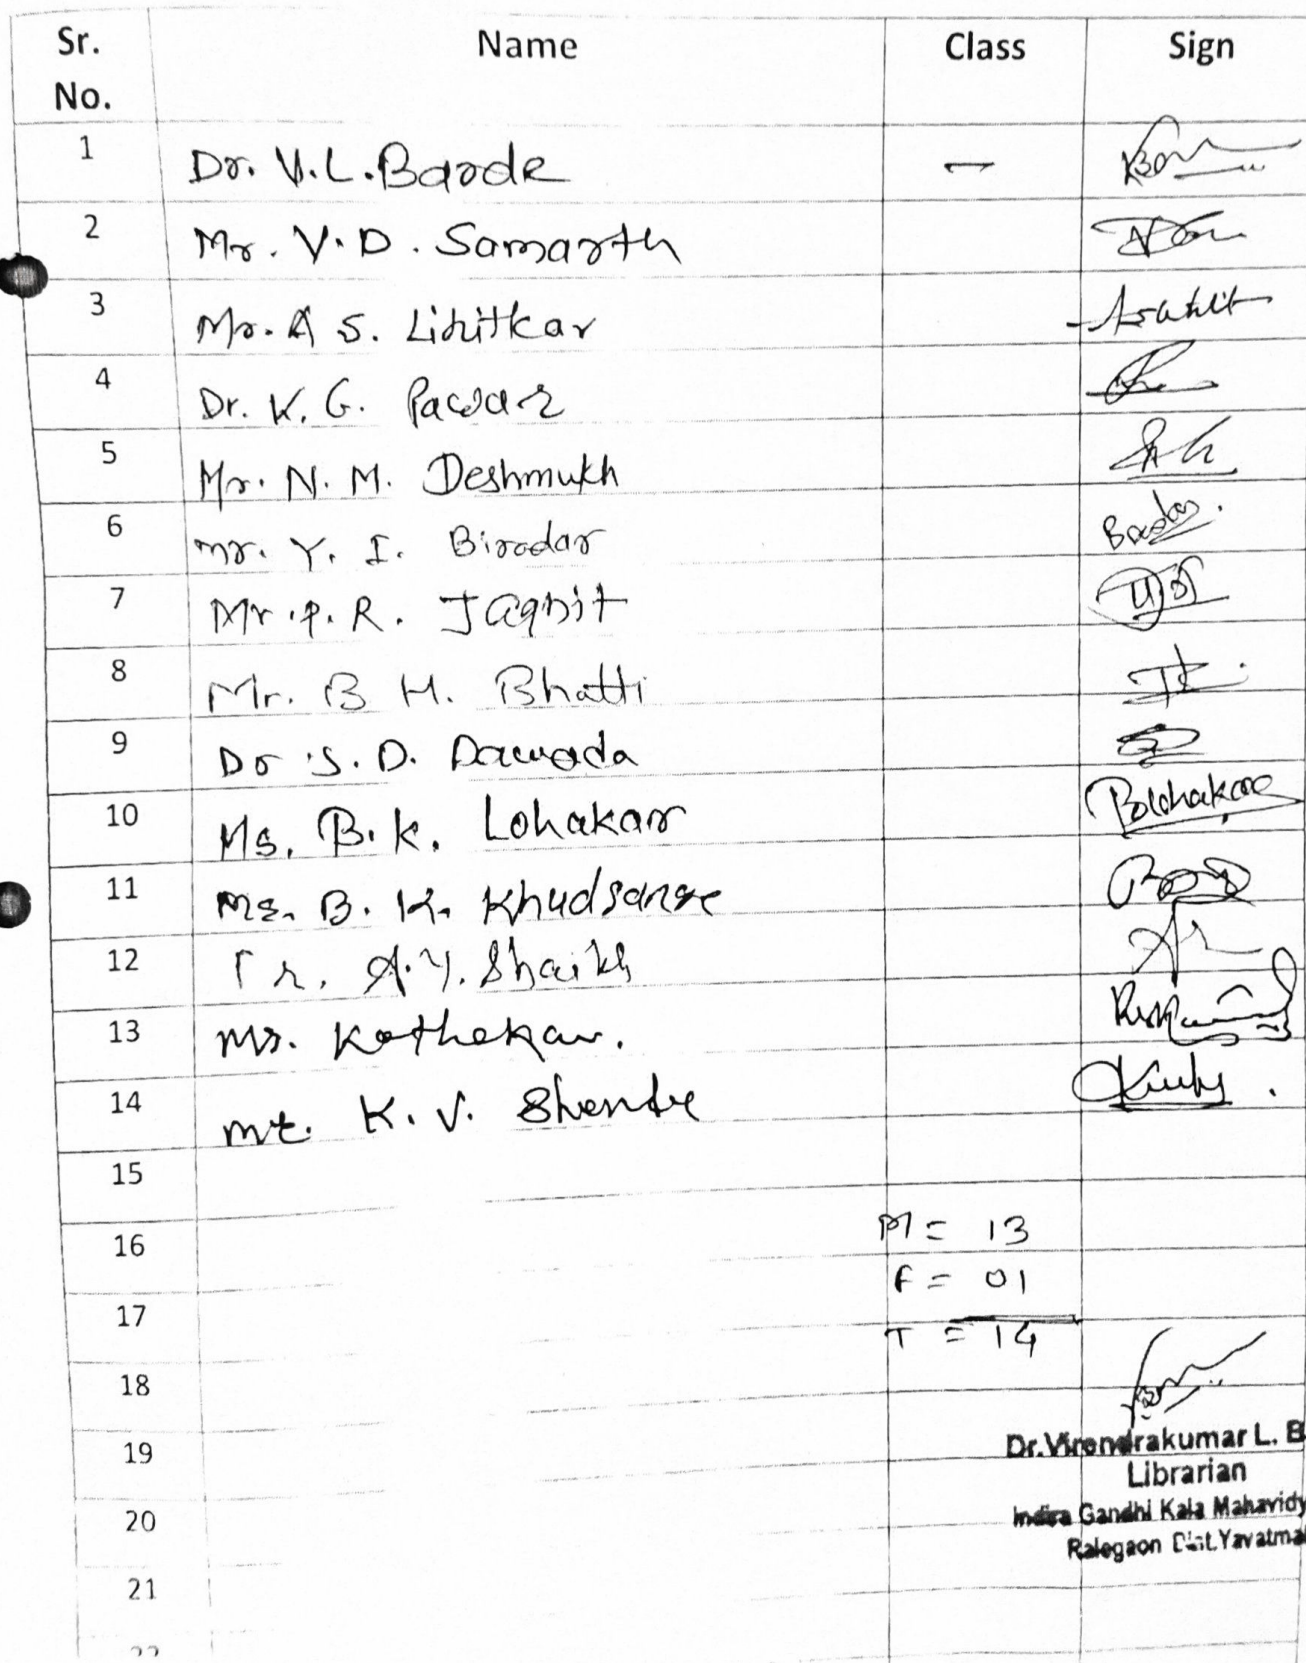 Sr. No. Name Class Sign
1 Dr. V.L. Barde –
2 Mr. V. D. Samarth
3 Mr. A S. Lihitkar
4 Dr. K. G. Pawar
5 Mr. N. M. Deshmukh
6 mr. Y. I. Biradar
7 Mr. P. R. Jagnit
8 Mr. B H. Bhatti
9 Dr S. D. Dawada
10 Ms. B. K. Lohakar Bklohakare
11 B. K. Khudsange
12 A. Y. Shaikh
13 Mr. Kothekar.
14 K. V. Shende
15
16 M = 13
F = 01
17
T = 14
18
19 Dr. Virendrakumar L. B
Librarian
20 Indira Gandhi Kala Mahavidy
Ralegaon Dist. Yavatmal
21
22